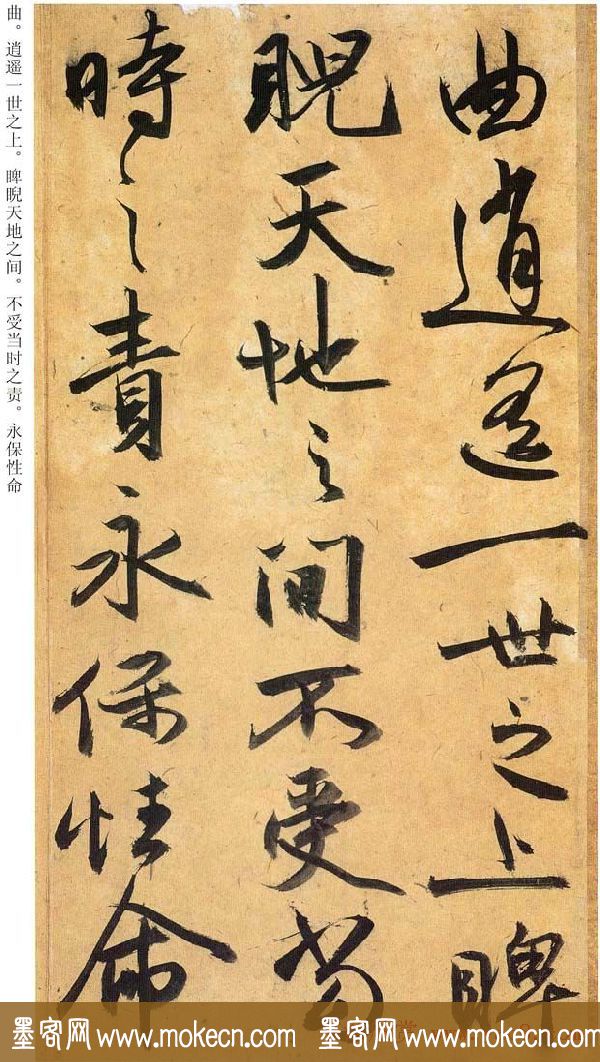 曲逍遥一世之上睥
睨天地之间不受当
時之責永保性命
曲。逍遥一世之上。睥睨天地之间。不受当时之责。永保性命
墨客网 www.mokecn.com 墨客网 www.mokecn.com